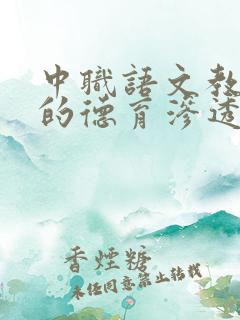 中職語文教
的德育滲透
香煙糖
未经同意禁止转载